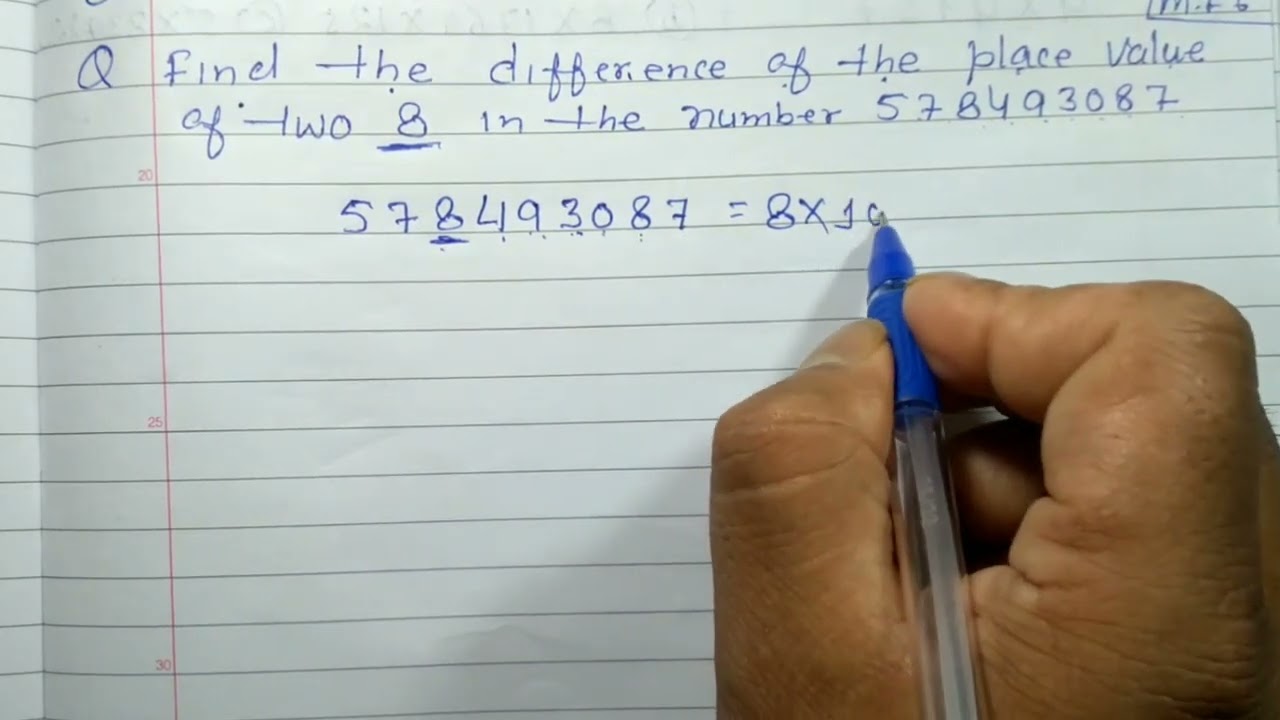 Q Find the difference of the place value
of two 8 in the number 578493087
20
578493087 = 8×10
25
30